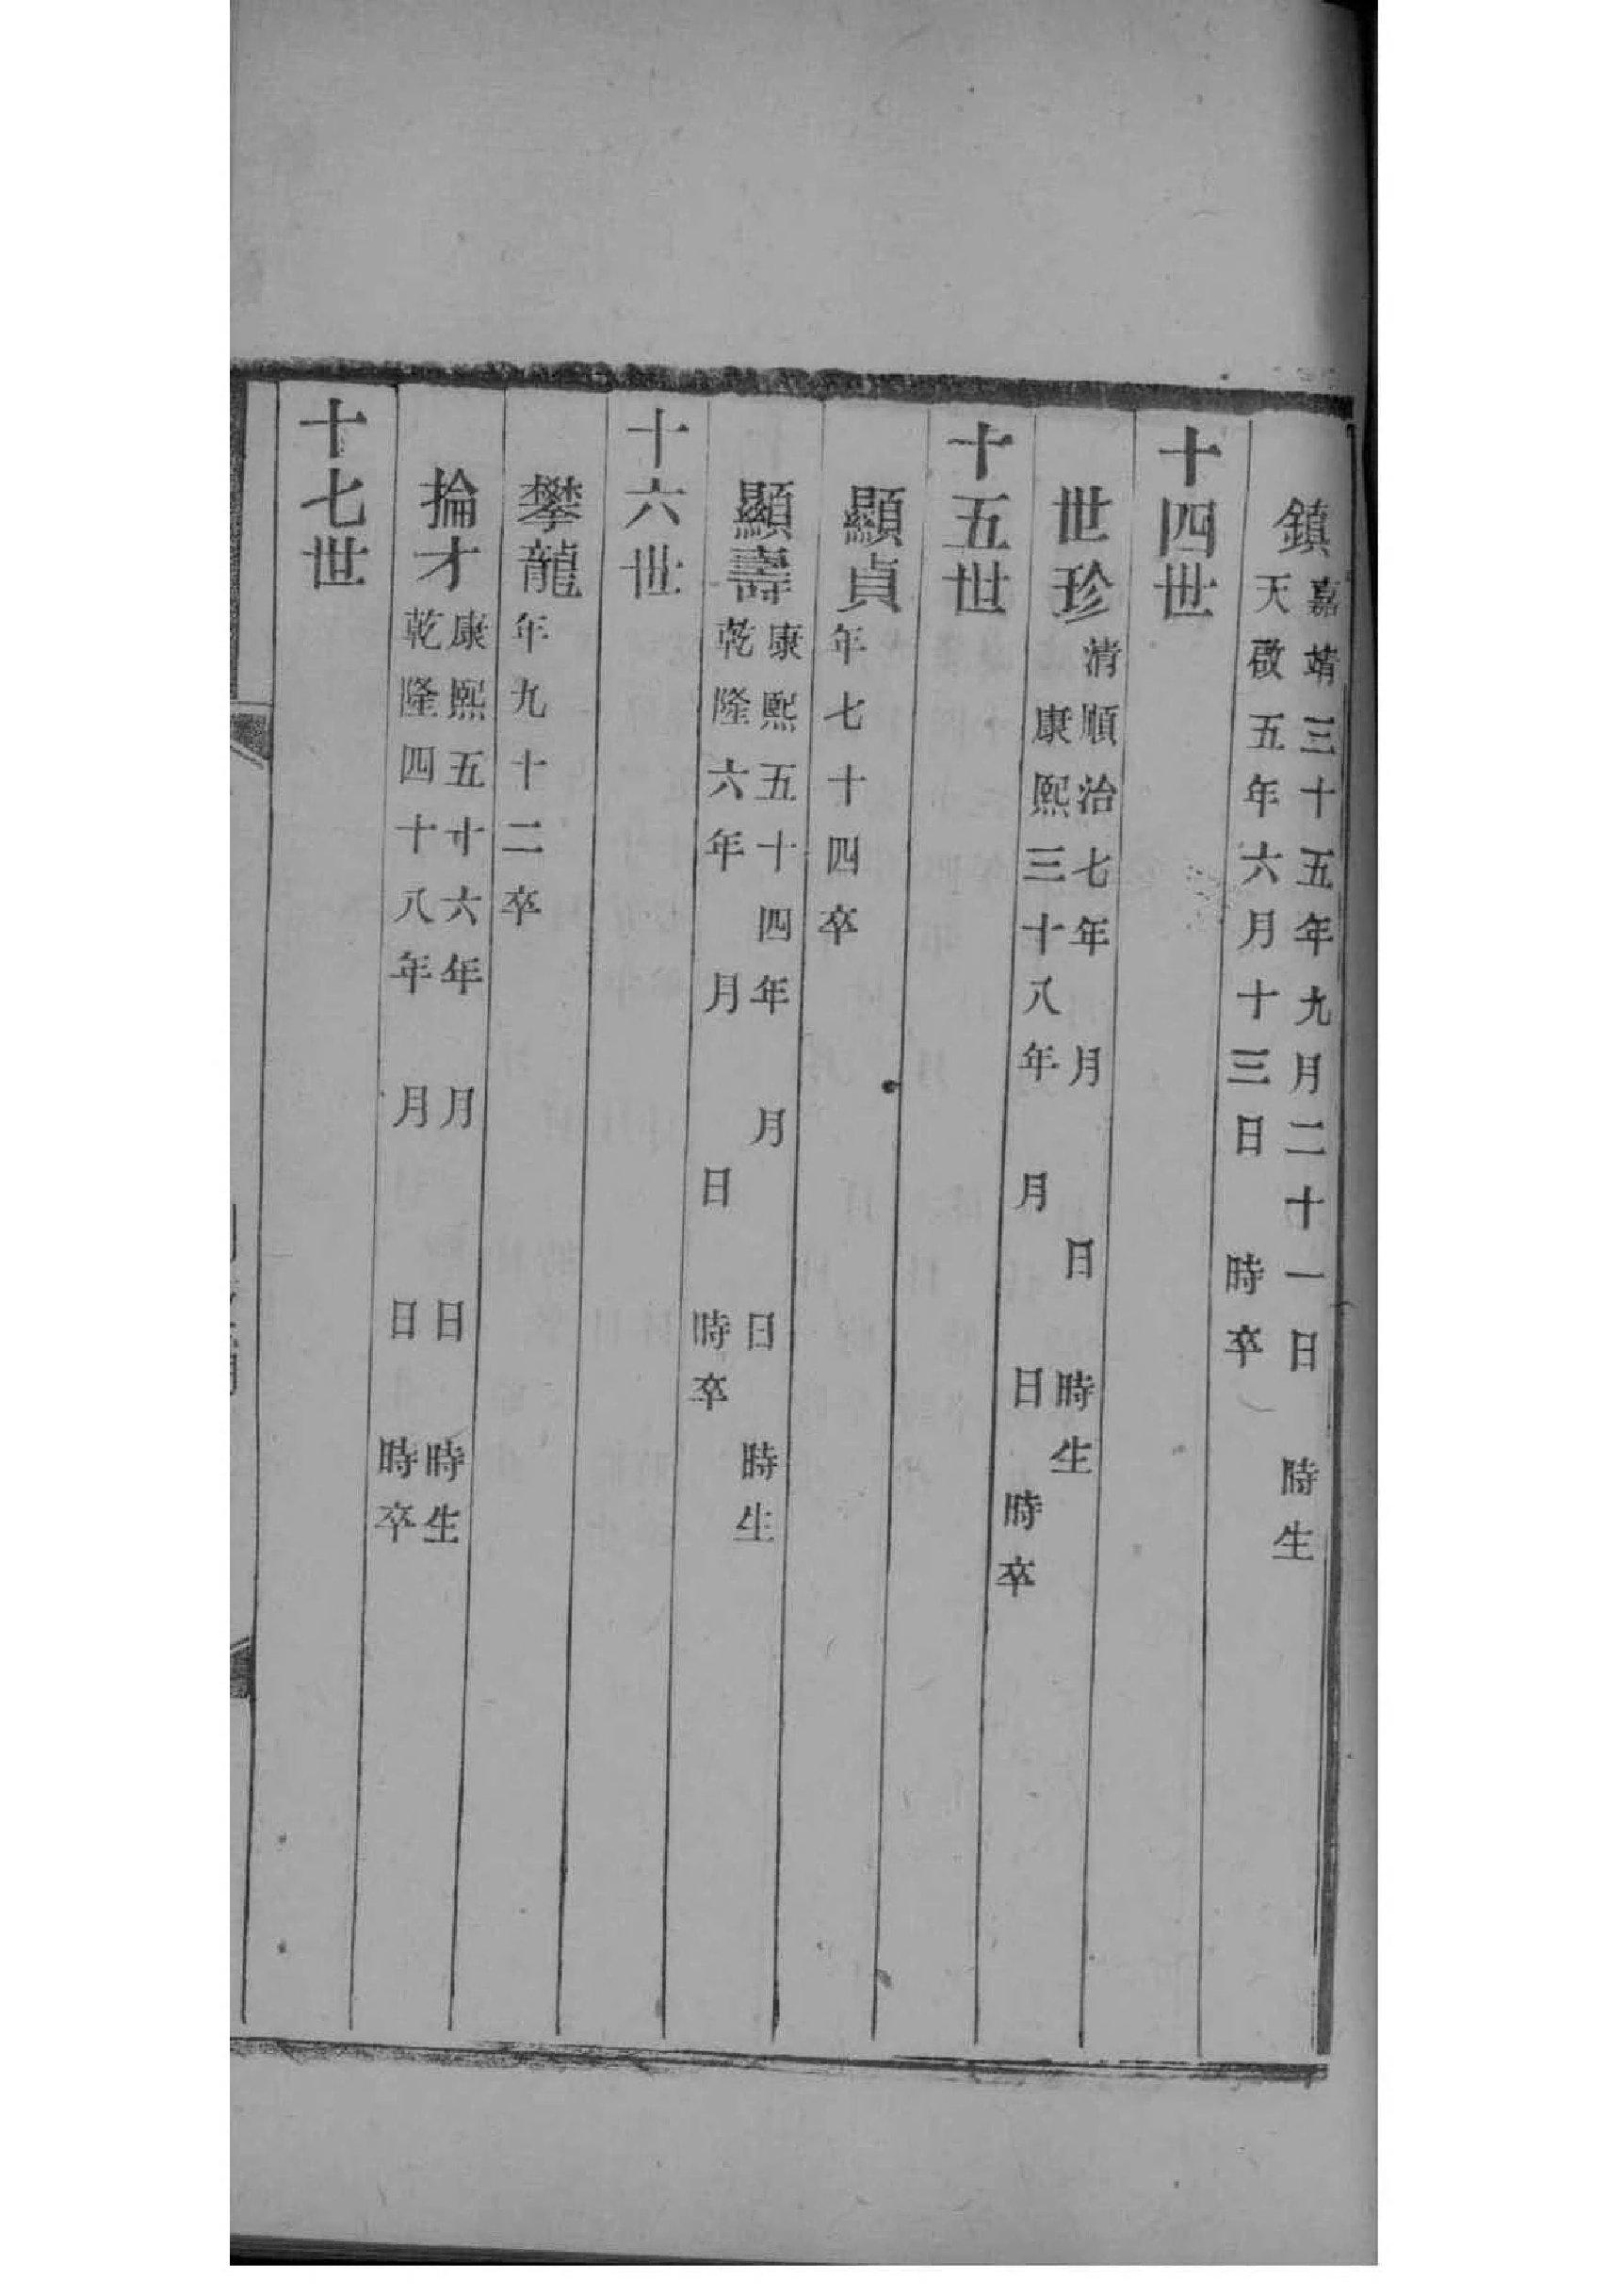 鎮
嘉靖三十五年九月二十一日　時生
天啟五年六月十三日　時卒
十四世
世珍
清順治七年　月　日　時生
康熙三十八年　月　日　時卒
十五世
顯貞
年七十四卒
顯壽
康熙五十四年　月　日　時生
乾隆六年　月　日　時卒
十六世
攀龍
年九十二卒
掄才
康熙五十六年　月　日　時生
乾隆四十八年　月　日　時卒
十七世